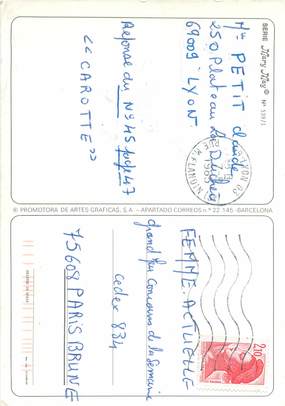 SERIE Mary May © Nº 539/1
Mme PETIT Claude
250 Plateau La Duchère
69009 LYON
Réponse du Nº 45 page 47
<< CAROTTE >>
LYON 03
1985
© PROMOTORA DE ARTES GRAFICAS, S.A. - APARTADO CORREOS n.º 22.145 - BARCELONA
FEMME ACTUELLE
Grand Jeu Concours de la Semaine
Cedex 834
75608 PARIS BRUNE
2,10